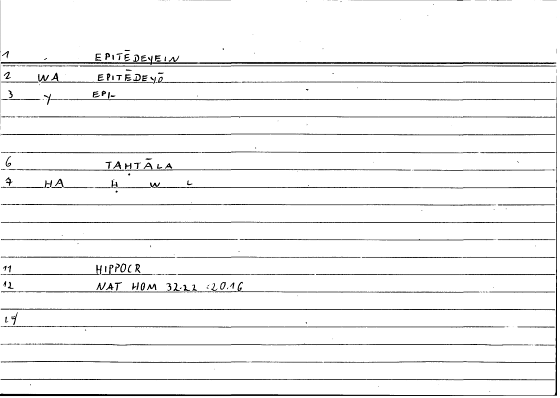 1 EPITĒDEYEIN
2 WA EPITĒDEYŌ
3 Y EPI-
6 TAḤTĀLA
7 HA Ḥ W L
11 HIPPOCR
12 NAT HOM 32.22 :20.16